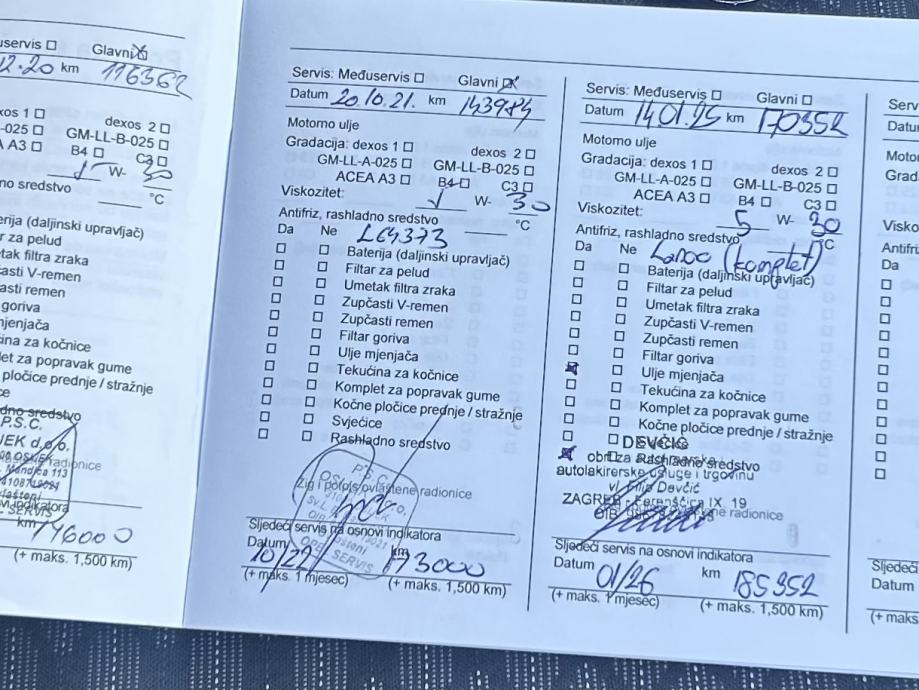 uservis ☐ Glavni ☒
12.20 km 116362
xos 1 ☐ dexos 2 ☐
-025 ☐ GM-LL-B-025 ☐
A A3 ☐ B4 ☐ C3 ☐
W- 30
no sredstvo °C
erija (daljinski upravljač)
ar za pelud
etak filtra zraka
časti V-remen
časti remen
goriva
mjenjača
ćina za kočnice
let za popravak gume
pločice prednje / stražnje
ce
dno sredstvo
P.S.C.
JEK d.o.o.
radionice
vi indikatora
km 146000
(+ maks. 1,500 km)
Servis: Međuservis ☐ Glavni ☒
Datum 20.10.21. km 143984
Motorno ulje
Gradacija: dexos 1 ☐ dexos 2 ☐
GM-LL-A-025 ☐ GM-LL-B-025 ☐
ACEA A3 ☐ B4 ☐ C3 ☐
Viskozitet: W- 30
Antifriz, rashladno sredstvo °C
Da Ne
☐ ☐ Baterija (daljinski upravljač)
☐ ☐ Filtar za pelud
☐ ☐ Umetak filtra zraka
☐ ☐ Zupčasti V-remen
☐ ☐ Zupčasti remen
☐ ☐ Filtar goriva
☐ ☐ Ulje mjenjača
☐ ☐ Tekućina za kočnice
☐ ☐ Komplet za popravak gume
☐ ☐ Kočne pločice prednje / stražnje
☐ ☐ Svjećice
☐ ☐ Rashladno sredstvo
P.S.C.
Žig i potpis ovlaštene radionice
OPEL SERVIS
Sljedeći servis na osnovi indikatora
Datum 10/22 km 173000
(+ maks. 1 mjesec) (+ maks. 1,500 km)
Servis: Međuservis ☐ Glavni ☐
Datum 14.01.25 km 170352
Motorno ulje
Gradacija: dexos 1 ☐ dexos 2 ☐
GM-LL-A-025 ☐ GM-LL-B-025 ☐
ACEA A3 ☐ B4 ☐ C3 ☐
Viskozitet: 5 W- 30
Antifriz, rashladno sredstvo °C
Da Ne Lanac (komplet)
☐ ☐ Baterija (daljinski upravljač)
☐ ☐ Filtar za pelud
☐ ☐ Umetak filtra zraka
☐ ☐ Zupčasti V-remen
☐ ☐ Zupčasti remen
☐ ☐ Filtar goriva
☒ ☐ Ulje mjenjača
☐ ☐ Tekućina za kočnice
☐ ☐ Komplet za popravak gume
☐ ☐ Kočne pločice prednje / stražnje
☐ ☐ Svjećice
DEVČIĆ
☒ obrt za Rashladno sredstvo
autolakirerske usluge i trgovinu
vl. Filip Devčić
ZAGREB - Ferenščica IX. 19
radionice
Sljedeći servis na osnovi indikatora
Datum 01/26 km 185352
(+ maks. 1 mjesec) (+ maks. 1,500 km)
Servi
Datu
Motor
Grada
Visko
Antifri
Da
Sljedeći
Datum
(+ maks.